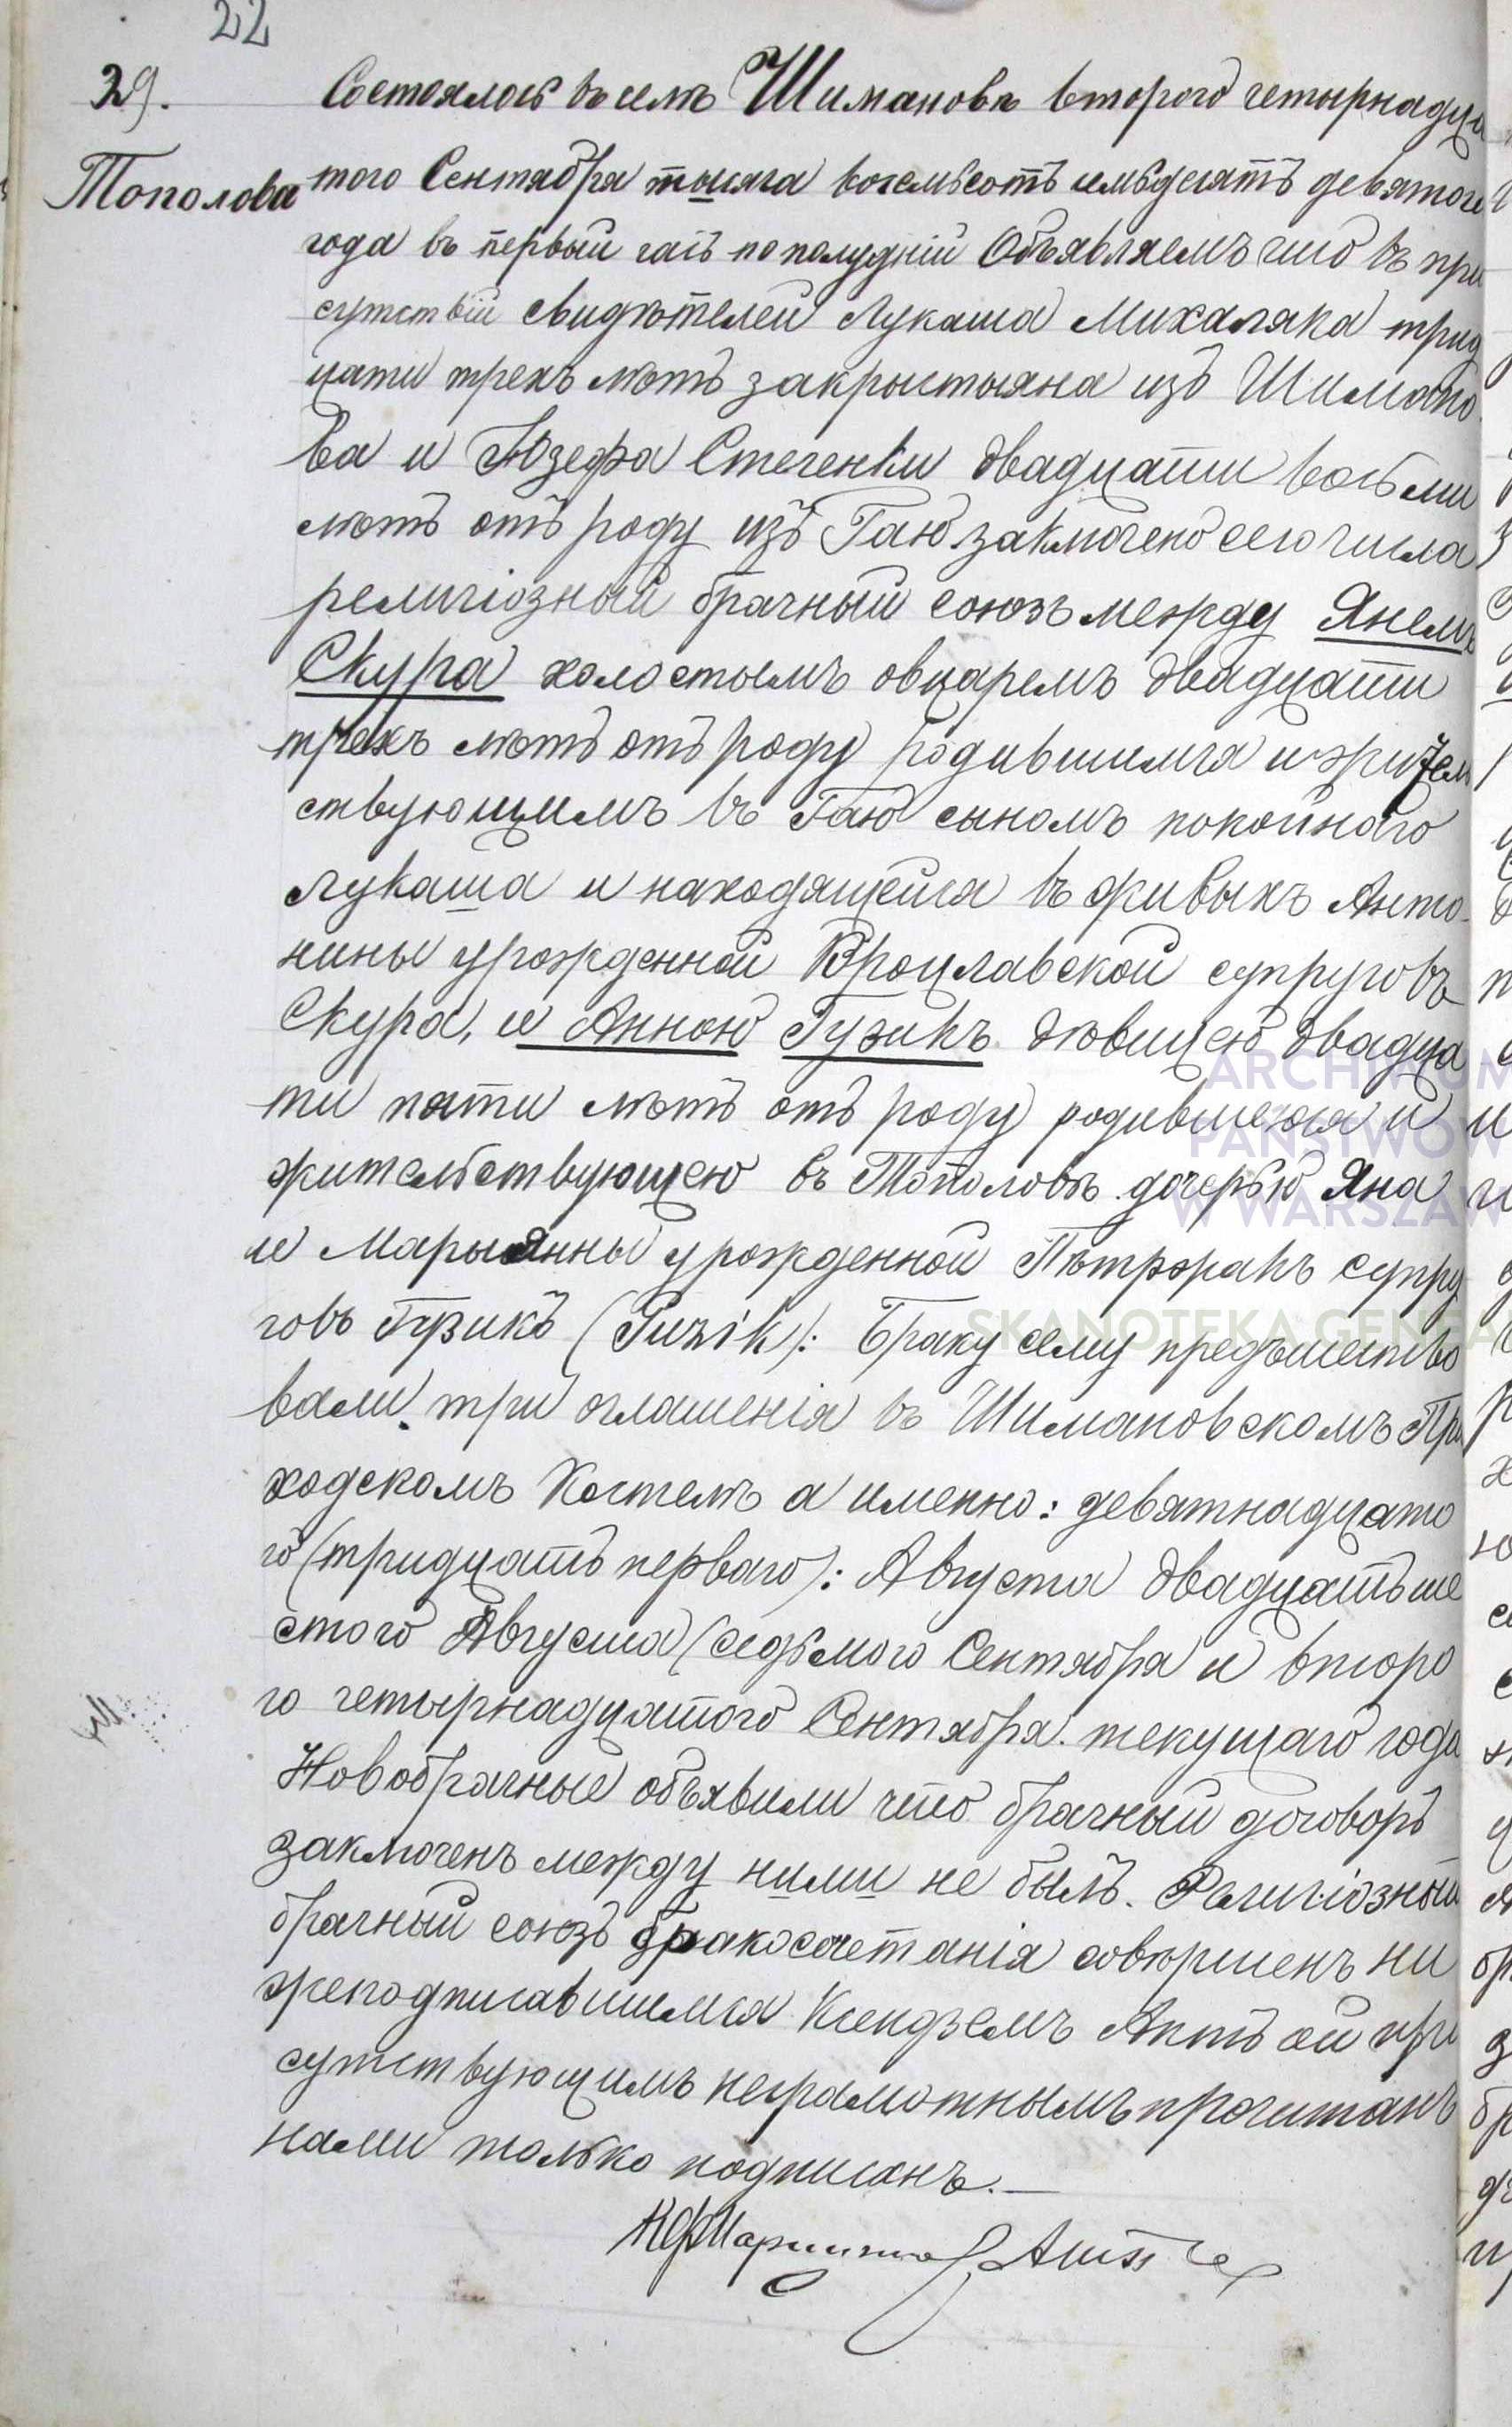 22
29.
Тополова
Состоялось въ селѣ Шимановѣ второго четырнадца
того Сентября тысяча восемьсотъ семьдесятъ девятого
года въ первый часъ по полудніи Объявляемъ что въ при
сутствіи свидѣтелей Лукаша Михаляка трид
цати трехъ лѣтъ закрыстыяна изъ Шимано
ва и Юзефа Стегенки двадцати восьми
лѣтъ отъ роду изъ Гаю заключено сего числа
религіозный брачный союзъ между Янемъ
Скура холостымъ овцаремъ двадцати
трехъ лѣтъ отъ роду родившимся и жител
ствующимъ въ Гаю сыномъ покойнаго
Лукаша и находящейся въ живыхъ Анто
нины урожденной Вроцлавской супруговъ
Скура, и Анною Гузикъ дѣвицею двадца
ти пяти лѣтъ отъ роду родившеюся и
жительствующею въ Тополовѣ дочерью Яна
и Марыянны урожденной Пѣтржакъ супру
говъ Гузикъ (Guzik): Браку сему предъшество
вали три оглашенія въ Шимановскомъ При
ходскомъ Костелѣ а именно: девятнадцато
го (тридцать перваго): Августа двадцать ше
стого Августа (седьмого Сентября и второ
го четырнадцатого Сентября текущаго года
Новобрачные объявили что брачный договоръ
заключенъ между ними не былъ. Религіозный
брачный союзъ бракосочетанія совершенъ ни
жеподписавшимся Ксендземъ Актъ сей при
сутствующимъ неграмотнымъ прочитанъ
нами только подписанъ.—
ARCHIWUM
PAŃSTWOW
W WARSZAW
SKANOTEKA GENEA